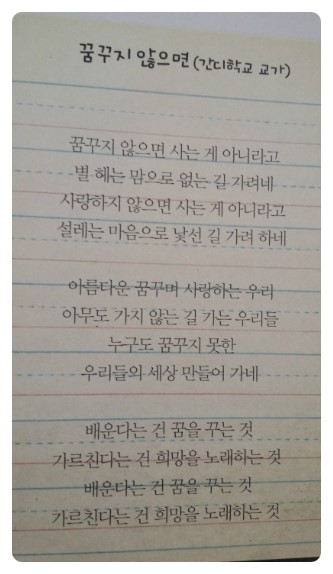 꿈꾸지 않으면 (간디학교 교가)
꿈꾸지 않으면 사는 게 아니라고
별 헤는 맘으로 없는 길 가려네
사랑하지 않으면 사는 게 아니라고
설레는 마음으로 낯선 길 가려 하네
아름다운 꿈꾸며 사랑하는 우리
아무도 가지 않는 길 가는 우리들
누구도 꿈꾸지 못한
우리들의 세상 만들어 가네
배운다는 건 꿈을 꾸는 것
가르친다는 건 희망을 노래하는 것
배운다는 건 꿈을 꾸는 것
가르친다는 건 희망을 노래하는 것